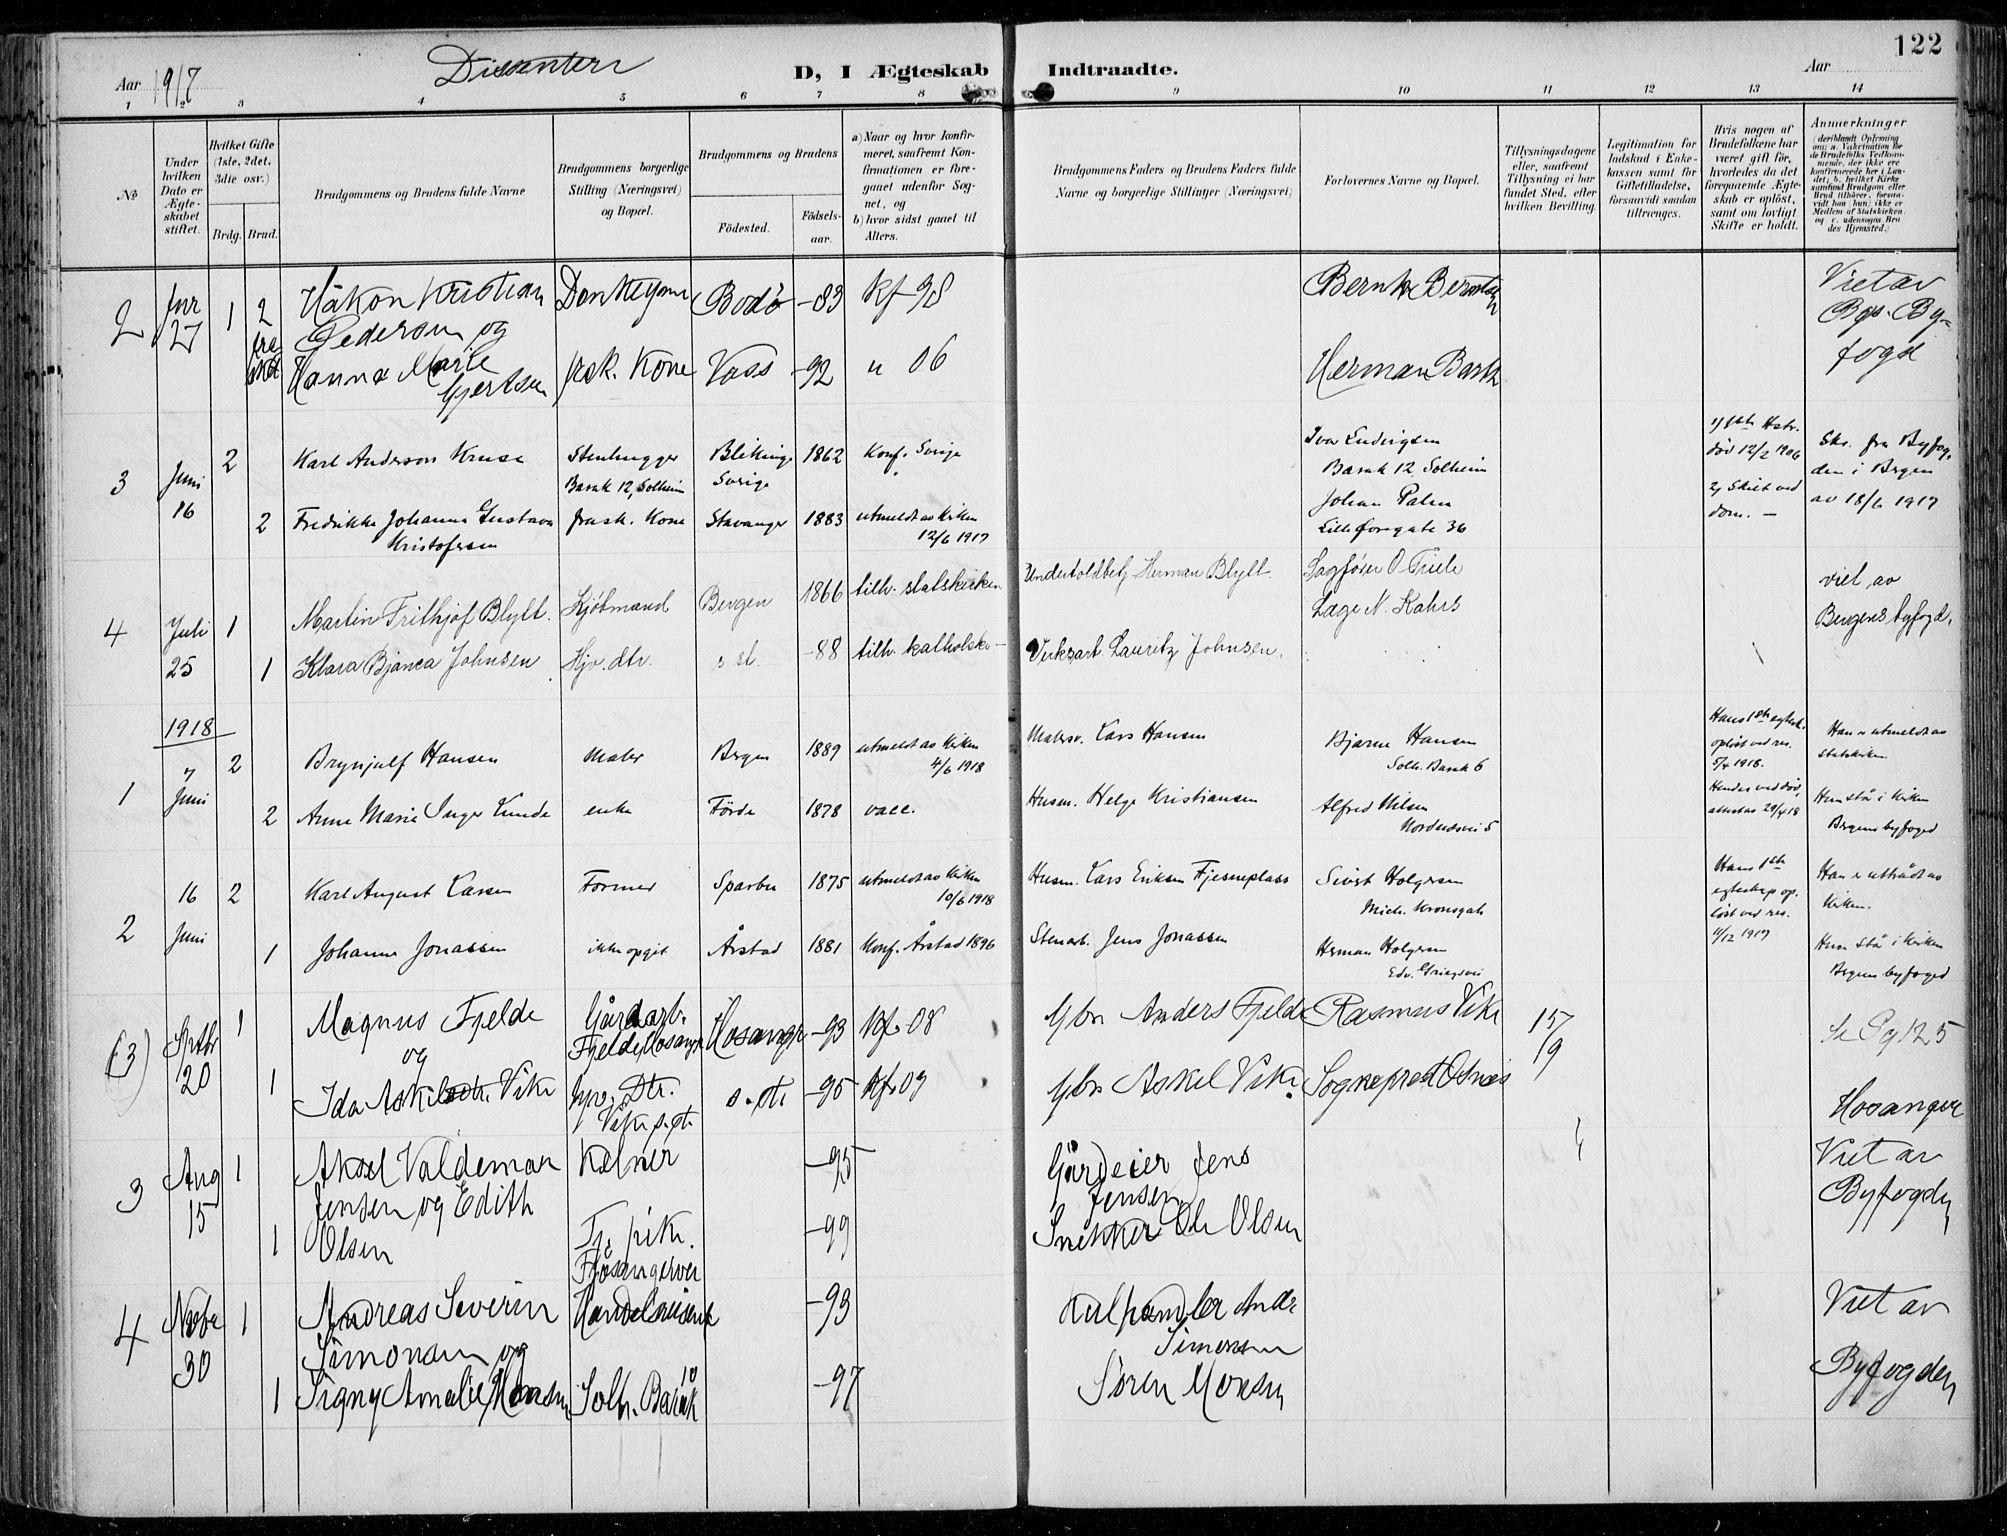 122
Aar 1917
Dissentere
D, I Ægteskab Indtraadte.
Aar
1 2 3 4 5 6 7 8 9 10 11 12 13 14
No
Under hvilken Dato er Ægteskabet stiftet.
Hvilket Gifte (1ste, 2det, 3die osv.)
Brdg. Brud.
Brudgommens og Brudens fulde Navne
Brudgommens borgerlige Stilling (Næringsvei) og Bopæl.
Brudgommens og Brudens
Fødested.
Fødselsaar.
a) Naar og hvor konfirmeret, saafremt Konfirmationen er foregaaet udenfor Sognet, og
b) hvor sidst gaaet til Alters.
Brudgommens Faders og Brudens Faders fulde Navne og borgerlige Stillinger (Næringsvei)
Forlovernes Navne og Bopæl.
Tillysningsdagene eller, saafremt Tillysning ei har fundet Sted, efter hvilken Bevilling.
Legitimation for Indskud i Enkekassen samt for Giftetilladelse, forsaavidt saadan tiltrænges.
Hvis nogen af Brudefolkene har været gift før, hvorledes da det foregaaende Ægteskab er opløst, samt om lovligt Skifte er holdt.
Anmerkninger (deriblandt Oplysning om: a. Vakcination for de Brudefolks Vedkommende, der ikke ere konfirmerede her i Landet; b. hvilket Kirkesamfund Brudgom eller Brud tilhører, forsavidt han (hun) ikke er Medlem af Statskirken, og c. udensogns Brudes Hjemsted.)
2 27 1 2 Håkon Kristian Bodø -83 Kf 98 Viet av
Pedersen og By-
fogd
Hanna Marie Gjertsen frsk. Kone Voss -92 " 06 Herman
3 Juni 16 2 Karl Anderson Kruse Stenhugger Blekinge 1862 Konf. Sverige Ivar Ludvigsen
Barak 12, Solheim Sverige Barak 12 Solheim død 12/2 1906
Johan Palm 2) Skilt ved dom. – av 18/6 1917
2 Fredrikke Johanne Gustava frask. Kone Stavanger 1883 utmeldt av kirken
Kristofersen 12/6 1917
4 Juli 25 1 Martin Frithjof Blytt Kjøbmand Bergen 1866 tilh. statskirken Herman Blytt viet av
N. Kahrs Bergens byfogd.
1 Klara Bjanca Johnsen Hjv. dtr. s. st. -88 tilh. katholske – Lauritz Johnsen.
1918
1 7 Juni 2 Brynjulf Hansen Maler Bergen 1889 utmeldt av kirken 4/6 1918 Malersv. Lars Hansen Bjarne Hansen
Solh. Barak 6
Hans 1ste egtesk. opløst ved res. 5/4 1918.
Han er utmeldt av statskirken.
2 Anne Marie Inger Kunde enke Førde 1878 vacc. Husm. Helge Kristiansen Alfred Nilsen
Nordnesvei 5
Hendes ved død, attest av 29/4 18
Hun står i kirken
Bergens byfoged
2 16 Juni 2 Karl August Larsen Former Sparbu 1875 utmeldt av kirken 10/6 1918 Husm. Lars Eriksen Fjesneplass Sivert Holgersen
Mich. Krohnsgate
Hans 1ste egteskap opløst ved res. 11/12 1917
Han er uttrådt av kirken.
1 Johanne Jonassen ikke opgit Årstad 1881 Konf. Årstad 1896 Stenarb. Jens Jonassen Herman Holgersen
Edv. Griegsvei
Hun står i kirken
Bergens byfoged
(3) Sptbr 20 1 Magnus Fjelde Gårdarb. -93 Kf. 08 Gbr. Anders Fjelde Rasmus Vike 15/9 Se Pg 125
og Fjelde, Hosanger
1 Ida Vike Hjv. Dtr. s. st. -95 Kf. 09 Gbr. Askel Vike
Vike s. st. Hosanger
3 Aug 15 1 Aksel Valdemar Kelner -95 Gårdeier Jens Viet av
Jensen og Edith Jensen Byfogden
1 Olsen Tj. pike. -99 Snekker Ole Olsen
Fjøsangervei
4 Novbr 30 1 Andreas Severin -93 Viet av
Simonsen og Simonsen Byfogden
1 Signy Amalie Monsen Solh. Barak 10 -97 Søren Monsen